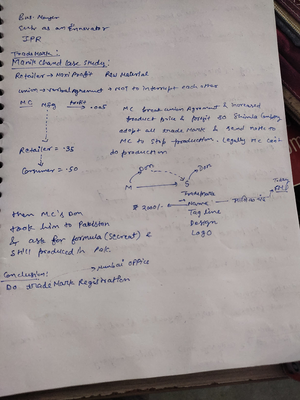 Bus. Player
Entr. as an Innovator
IPR
Trade Mark :
Manik Chand Case Study :
Retailer → Maxi Profit Raw Material
Union → Verbal Agreement → Not to interrupt each other
M.C. MSQ Profit → .025
M.C. break union Agreement & increased
product price & profit so Shimla Company
adopt all trade Mark & send notes to
MC to stop production. Legally MC can't
do production
Retailer = .35
Consumer = .50
Don Don
M S
₹ 200/- Name
Tag line
Design
Logo
then M.C's Don
took him to Pakistan
& ask for formula (Secret) &
Still produced in Pak.
Conclusion : → Mumbai Office
Do trade Mark Registration